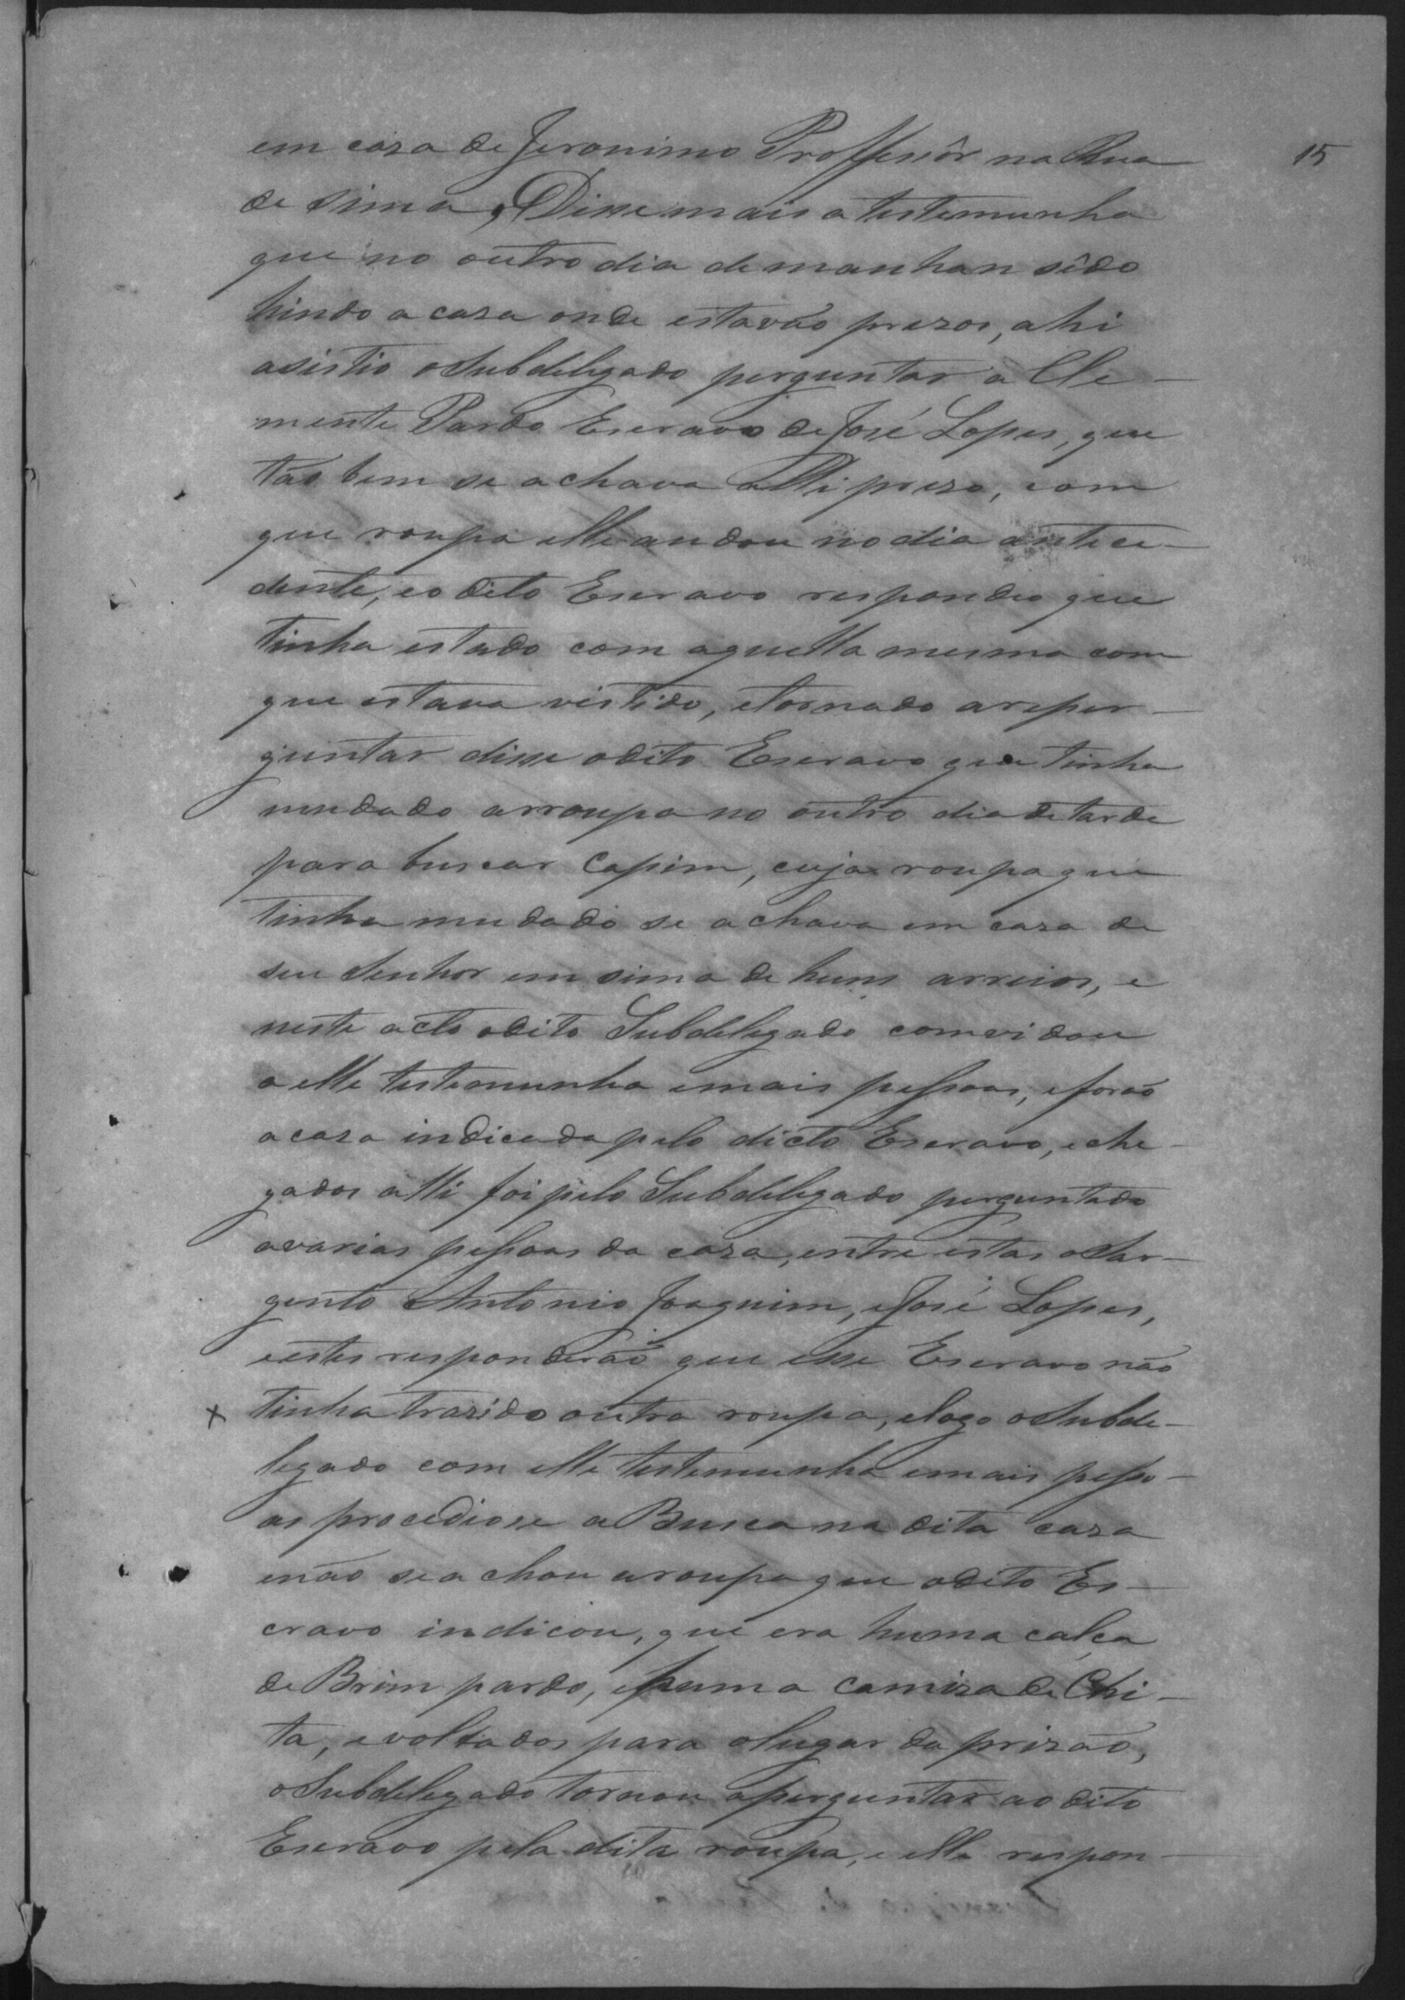 15
em caza de Jeronimo Proffessôr na Rua
de sima, Disse mais a testemunha
que no outro dia de manhan sêdo
hindo a caza onde estavão prezos, ahi
asistio o Subdelegado perguntar a Cle-
mente Pardo Escravo de José Lopes, que
tão bem se achava alli prezo, com
que roupa elle andou no dia antece-
dente, eo dito Escravo respondeo que
tinha estado com aquella mesma com
que estava vistido, etornado areper-
guntar disse odito Escravo que tinha
mudado arroupa no outro dia de tarde
para buscar Capim, cuja roupa que
tinha mudado se achava em caza de
seu Senhor em sima de huns arreios, e
neste acto odito Subdelegado comvidou
a elle testemunha emais pessoas, eforão
acaza indicada pelo dicto Escravo, eche-
gados alli foi pelo Subdelegado perguntado
avarias pessoas da caza, entre estas oSar-
gento Antonio Joaquim, eJosé Lopes,
eestes responderão que esse Escravo não
x tinha trazido outra roupa, elogo oSubde-
legado com elle testemunha emais pesso-
as procediose a Busca na dita caza
enão se achou aroupa que odito Es-
cravo indicou, que era huma calça
de Brim pardo, ehuma camiza de Chi-
ta, evoltados para olugar da prizão,
oSubdelegado tornou aperguntar ao dito
Escravo pela dita roupa, e elle respon-